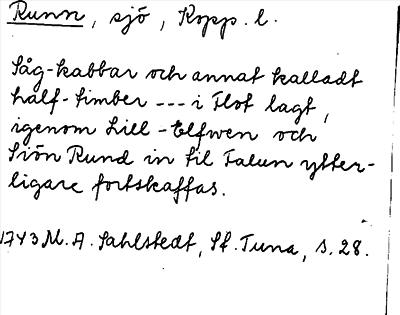 Runn, sjö, Kopp. l.
Såg-kabbar och annat kalladt
half-timber --- i Flot lagt,
igenom Lill-Elfwen och
Siön Rund in til Falun ytter-
ligare fortskaffas.
1743 M. A. Sahlstedt, St. Tuna, s. 28.